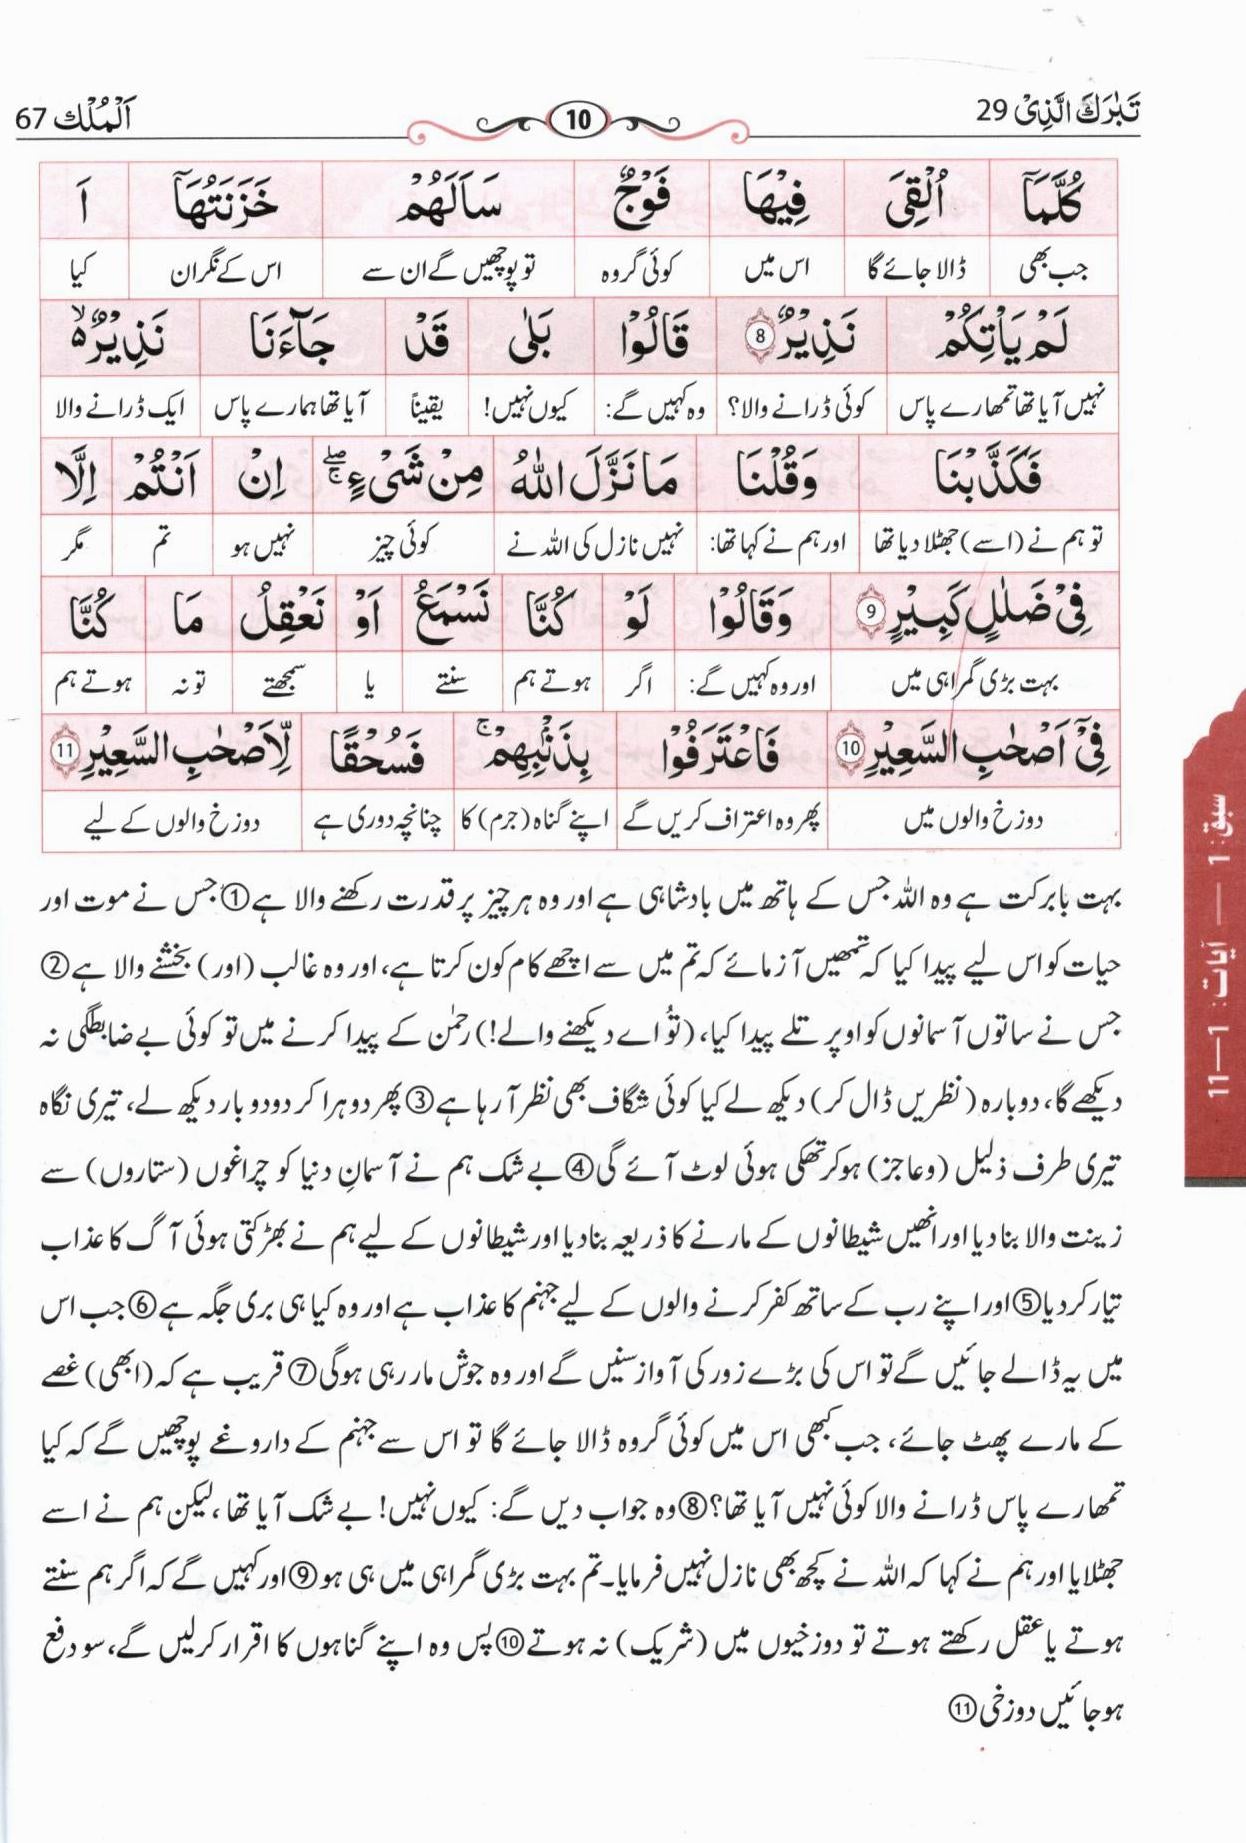 تَبٰرَكَ الَّذِىْ 29
10
اَلْمُلْك 67
كُلَّمَآ اُلْقِىَ فِيْهَا فَوْجٌ سَاَلَهُمْ خَزَنَتُهَآ اَ
جب بھی ڈالا جائے گا اس میں کوئی گروہ تو پوچھیں گے ان سے اس کے نگران کیا
لَمْ يَاْتِكُمْ نَذِيْرٌ 8 قَالُوْا بَلٰى قَدْ جَآءَنَا نَذِيْرٌ ۙ
نہیں آیا تھا تمھارے پاس کوئی ڈرانے والا؟ وہ کہیں گے: کیوں نہیں! یقیناً آیا تھا ہمارے پاس ایک ڈرانے والا
فَكَذَّبْنَا وَقُلْنَا مَا نَزَّلَ اللّٰهُ مِنْ شَىْءٍ ۖ ۚ اِنْ اَنْتُمْ اِلَّا
تو ہم نے (اسے) جھٹلا دیا تھا اور ہم نے کہا تھا: نہیں نازل کی اللہ نے کوئی چیز نہیں ہو تم مگر
فِىْ ضَلٰلٍ كَبِيْرٍ 9 وَقَالُوْا لَوْ كُنَّا نَسْمَعُ اَوْ نَعْقِلُ مَا كُنَّا
بہت بڑی گمراہی میں اور وہ کہیں گے: اگر ہوتے ہم سنتے یا سمجھتے تو نہ ہوتے ہم
فِىْٓ اَصْحٰبِ السَّعِيْرِ 10 فَاعْتَرَفُوْا بِذَنْۢبِهِمْ ۚ فَسُحْقًا لِّاَصْحٰبِ السَّعِيْرِ 11
دوزخ والوں میں پھر وہ اعتراف کریں گے اپنے گناہ (جرم) کا چنانچہ دوری ہے دوزخ والوں کے لیے
بہت بابرکت ہے وہ اللہ جس کے ہاتھ میں بادشاہی ہے اور وہ ہر چیز پر قدرت رکھنے والا ہے ① جس نے موت اور
حیات کو اس لیے پیدا کیا کہ تمھیں آزمائے کہ تم میں سے اچھے کام کون کرتا ہے، اور وہ غالب (اور) بخشنے والا ہے ②
جس نے ساتوں آسمانوں کو اوپر تلے پیدا کیا، (تُو اے دیکھنے والے!) رحمٰن کے پیدا کرنے میں تو کوئی بے ضابطگی نہ
دیکھے گا، دوبارہ (نظریں ڈال کر) دیکھ لے کیا کوئی شگاف بھی نظر آ رہا ہے ③ پھر دوہرا کر دو دو بار دیکھ لے، تیری نگاہ
تیری طرف ذلیل (وعاجز) ہو کر تھکی ہوئی لوٹ آئے گی ④ بے شک ہم نے آسمانِ دنیا کو چراغوں (ستاروں) سے
زینت والا بنا دیا اور انھیں شیطانوں کے مارنے کا ذریعہ بنا دیا اور شیطانوں کے لیے ہم نے بھڑکتی ہوئی آگ کا عذاب
تیار کر دیا ⑤ اور اپنے رب کے ساتھ کفر کرنے والوں کے لیے جہنم کا عذاب ہے اور وہ کیا ہی بری جگہ ہے ⑥ جب اس
میں یہ ڈالے جائیں گے تو اس کی بڑے زور کی آواز سنیں گے اور وہ جوش مار رہی ہوگی ⑦ قریب ہے کہ (ابھی) غصے
کے مارے پھٹ جائے، جب کبھی اس میں کوئی گروہ ڈالا جائے گا تو اس سے جہنم کے داروغے پوچھیں گے کہ کیا
تمھارے پاس ڈرانے والا کوئی نہیں آیا تھا؟ ⑧ وہ جواب دیں گے: کیوں نہیں! بے شک آیا تھا، لیکن ہم نے اسے
جھٹلایا اور ہم نے کہا کہ اللہ نے کچھ بھی نازل نہیں فرمایا۔ تم بہت بڑی گمراہی میں ہی ہو ⑨ اور کہیں گے کہ اگر ہم سنتے
ہوتے یا عقل رکھتے ہوتے تو دوزخیوں میں (شریک) نہ ہوتے ⑩ پس وہ اپنے گناہوں کا اقرار کرلیں گے، سو دفع
ہو جائیں دوزخی ⑪
سبق: 1 — آیات: 1—11